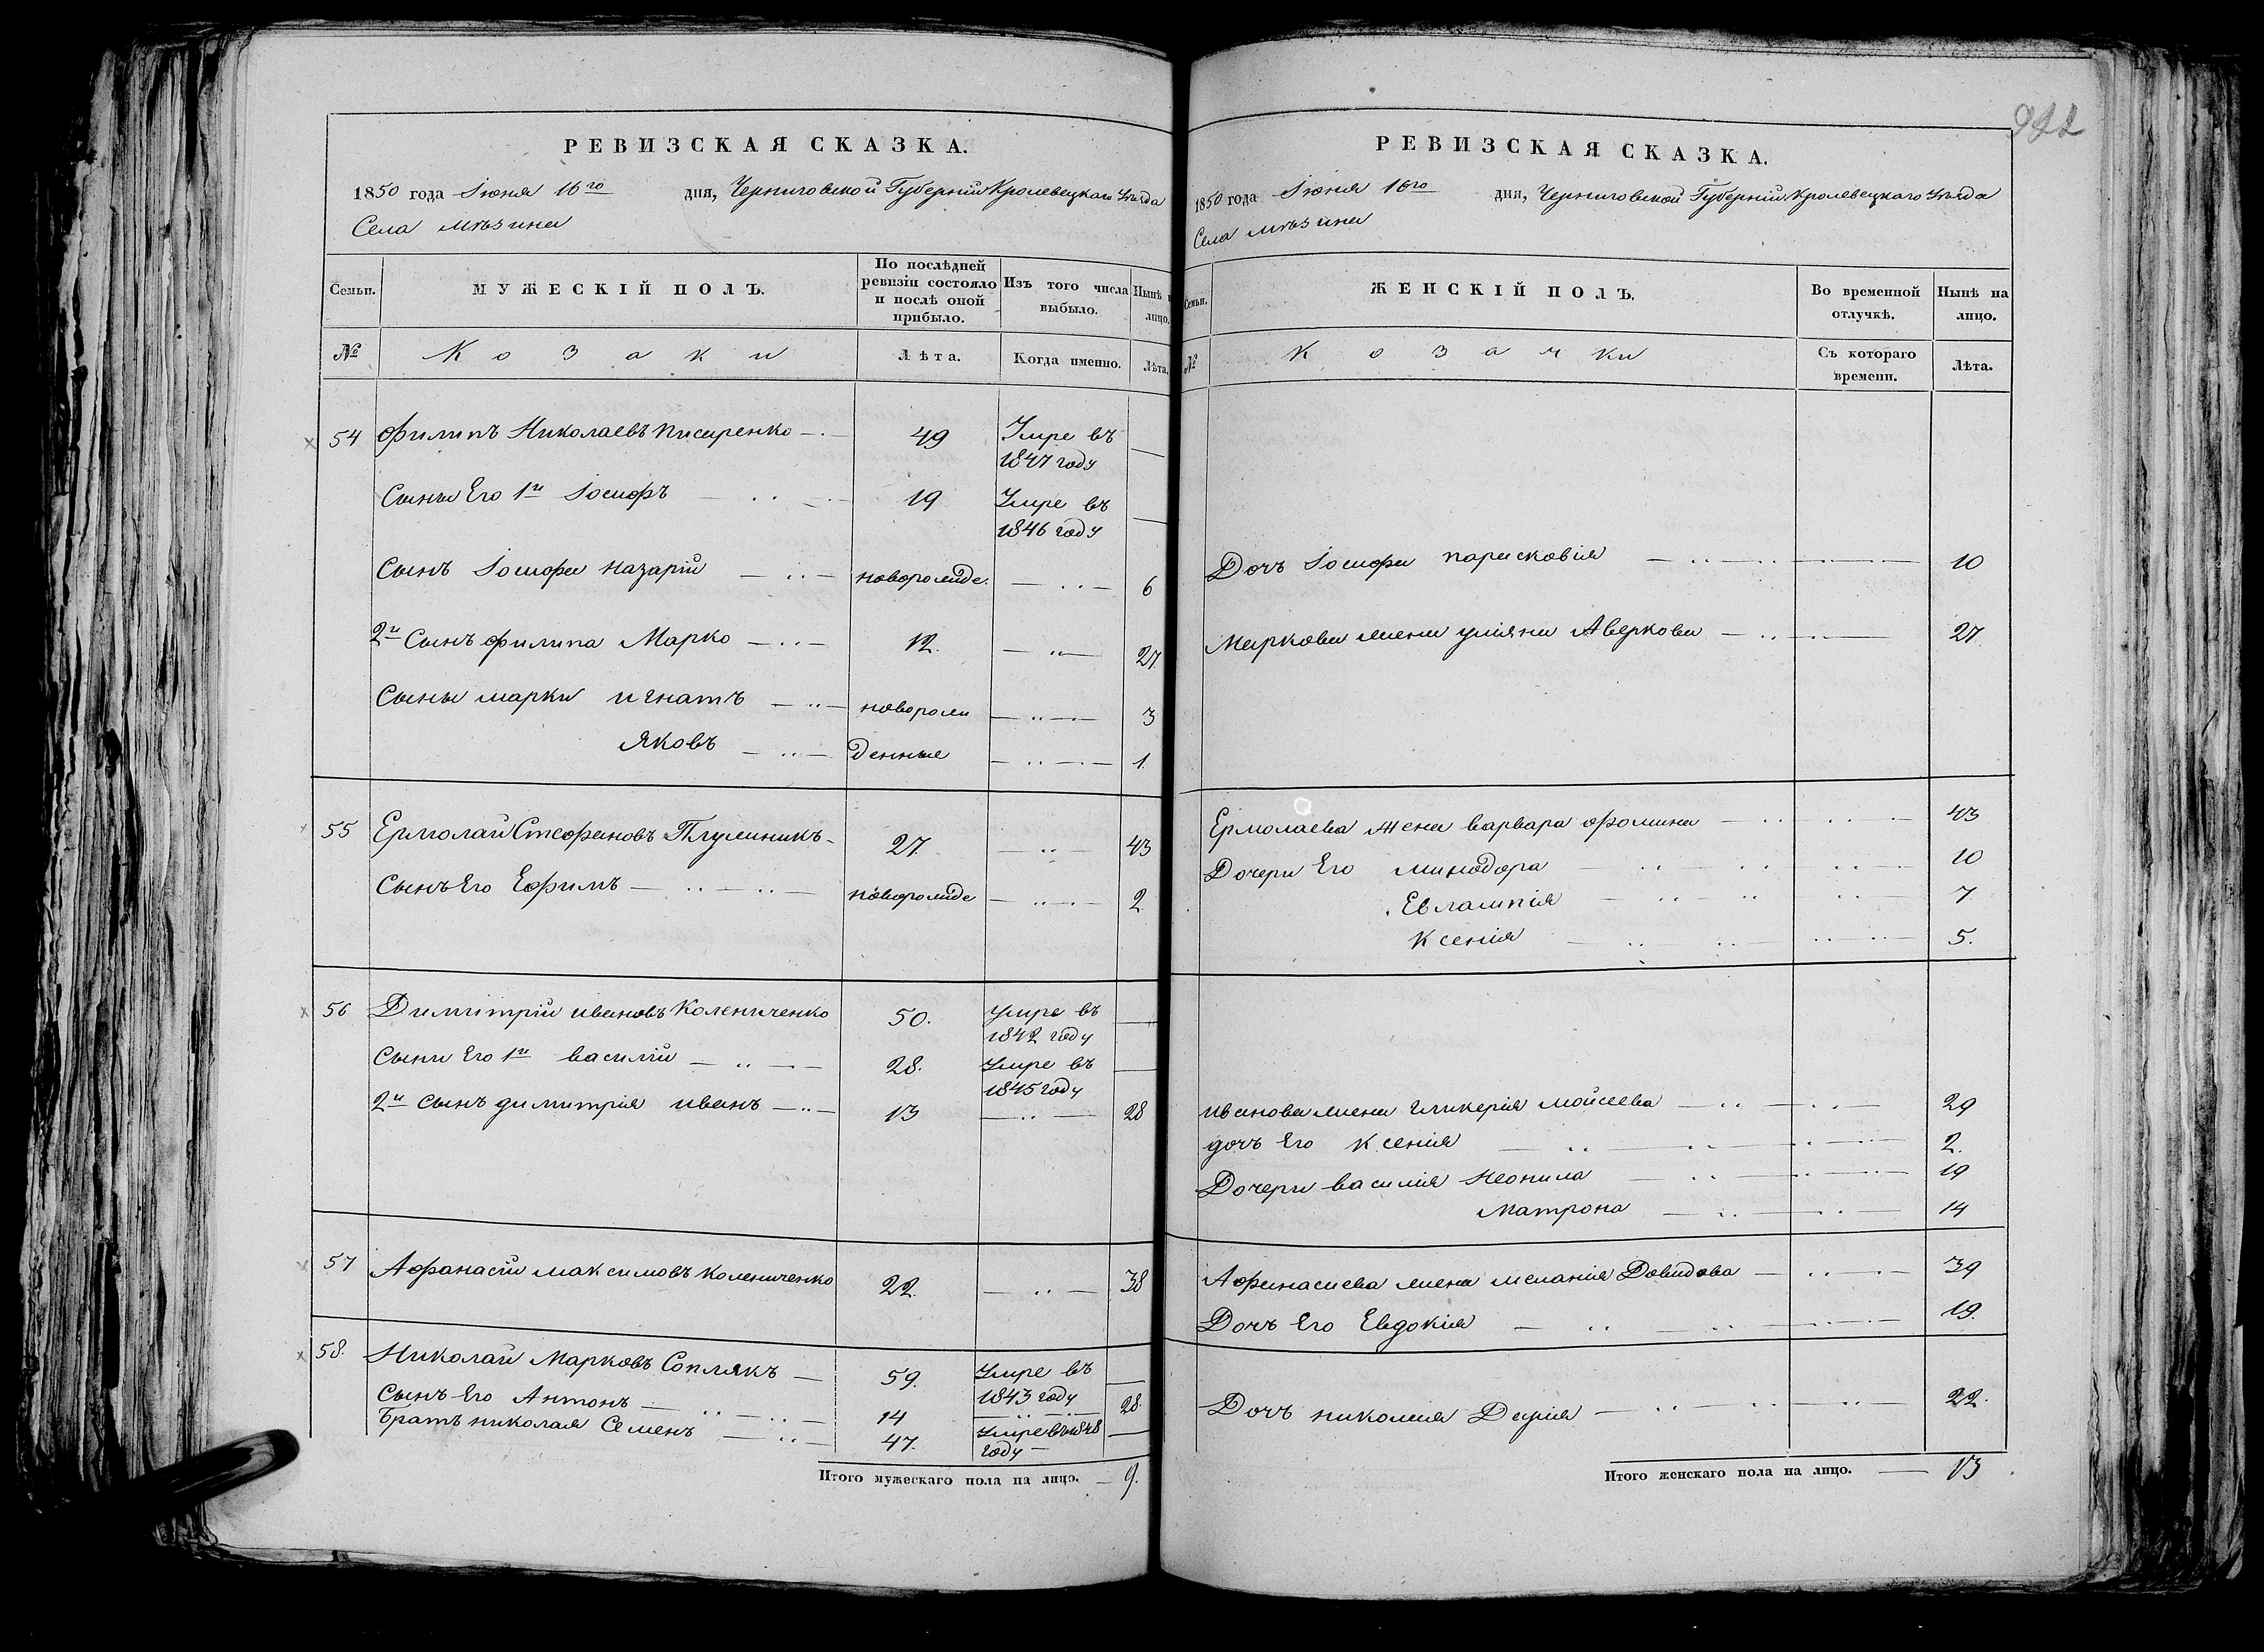 РЕВИЗСКАЯ СКАЗКА.
1850 года Іюня 16го дня, Черниговской Губерніи Кролевецкаго Уѣзда
Села Мѣзина
Семьи. МУЖЕСКІЙ ПОЛЪ. По послѣдней ревизіи состояло и послѣ оной прибыло. Изъ того числа выбыло. Нынѣ на лицо.
№ Козаки Лѣта. Когда именно. Лѣта.
54 Филипъ Николаевъ Писаренко 49 Умре въ 1847 году
Сыны Его 1й Іосифъ 19 Умре въ 1846 году
Сынъ Іосифа Назарій новорожде. 6
2й Сынъ Филипа Марко 12. 27.
Сыны Марки Игнатъ новорож 3
Яковъ денные 1.
55 Ермолай Стефановъ 27. 43
Сынъ Его Ефимъ новорожде 2.
56 Димитрій Ивановъ Колениченко 50. Умре въ 1842 году
Сыны Его 1й Василій 28. Умре въ 1845 году
2й Сынъ Димитрія Иванъ 13 28
57 Афанасій Максимовъ Колениченко 22. 38
58. Николай Марковъ Соплякъ 59. Умре въ 1843 году
Сынъ Его Антонъ 14 28.
Братъ Николая Семенъ 47. Умре въ 1848 году
Итого мужескаго пола на лицо. 9.
922
РЕВИЗСКАЯ СКАЗКА.
1850 года Іюня 16го дня, Черниговской Губерніи Кролевецкаго Уѣзда
Села Мѣзина
Семьи. ЖЕНСКІЙ ПОЛЪ. Во временной отлучкѣ. Нынѣ на лицо.
№ Козачки Съ котораго времени. Лѣта.
Дочъ Іосифа Парасковія 10
Маркова жена Уліяна Аверкова 27.
Ермолаева Жена Варвара Фомина 43
Дочери Его Минодора 10
Евлампія 7
Ксенія 5.
Иванова жена Гликерія Мойсеева 29
дочъ Его Ксенія 2.
Дочери Василія Неонила 19
Матрона 14
Афанасиева жена Меланія Довидова 39
Дочъ Его Евдокія 19.
Дочъ Николая Дарія 22.
Итого женскаго пола на лицо. 13